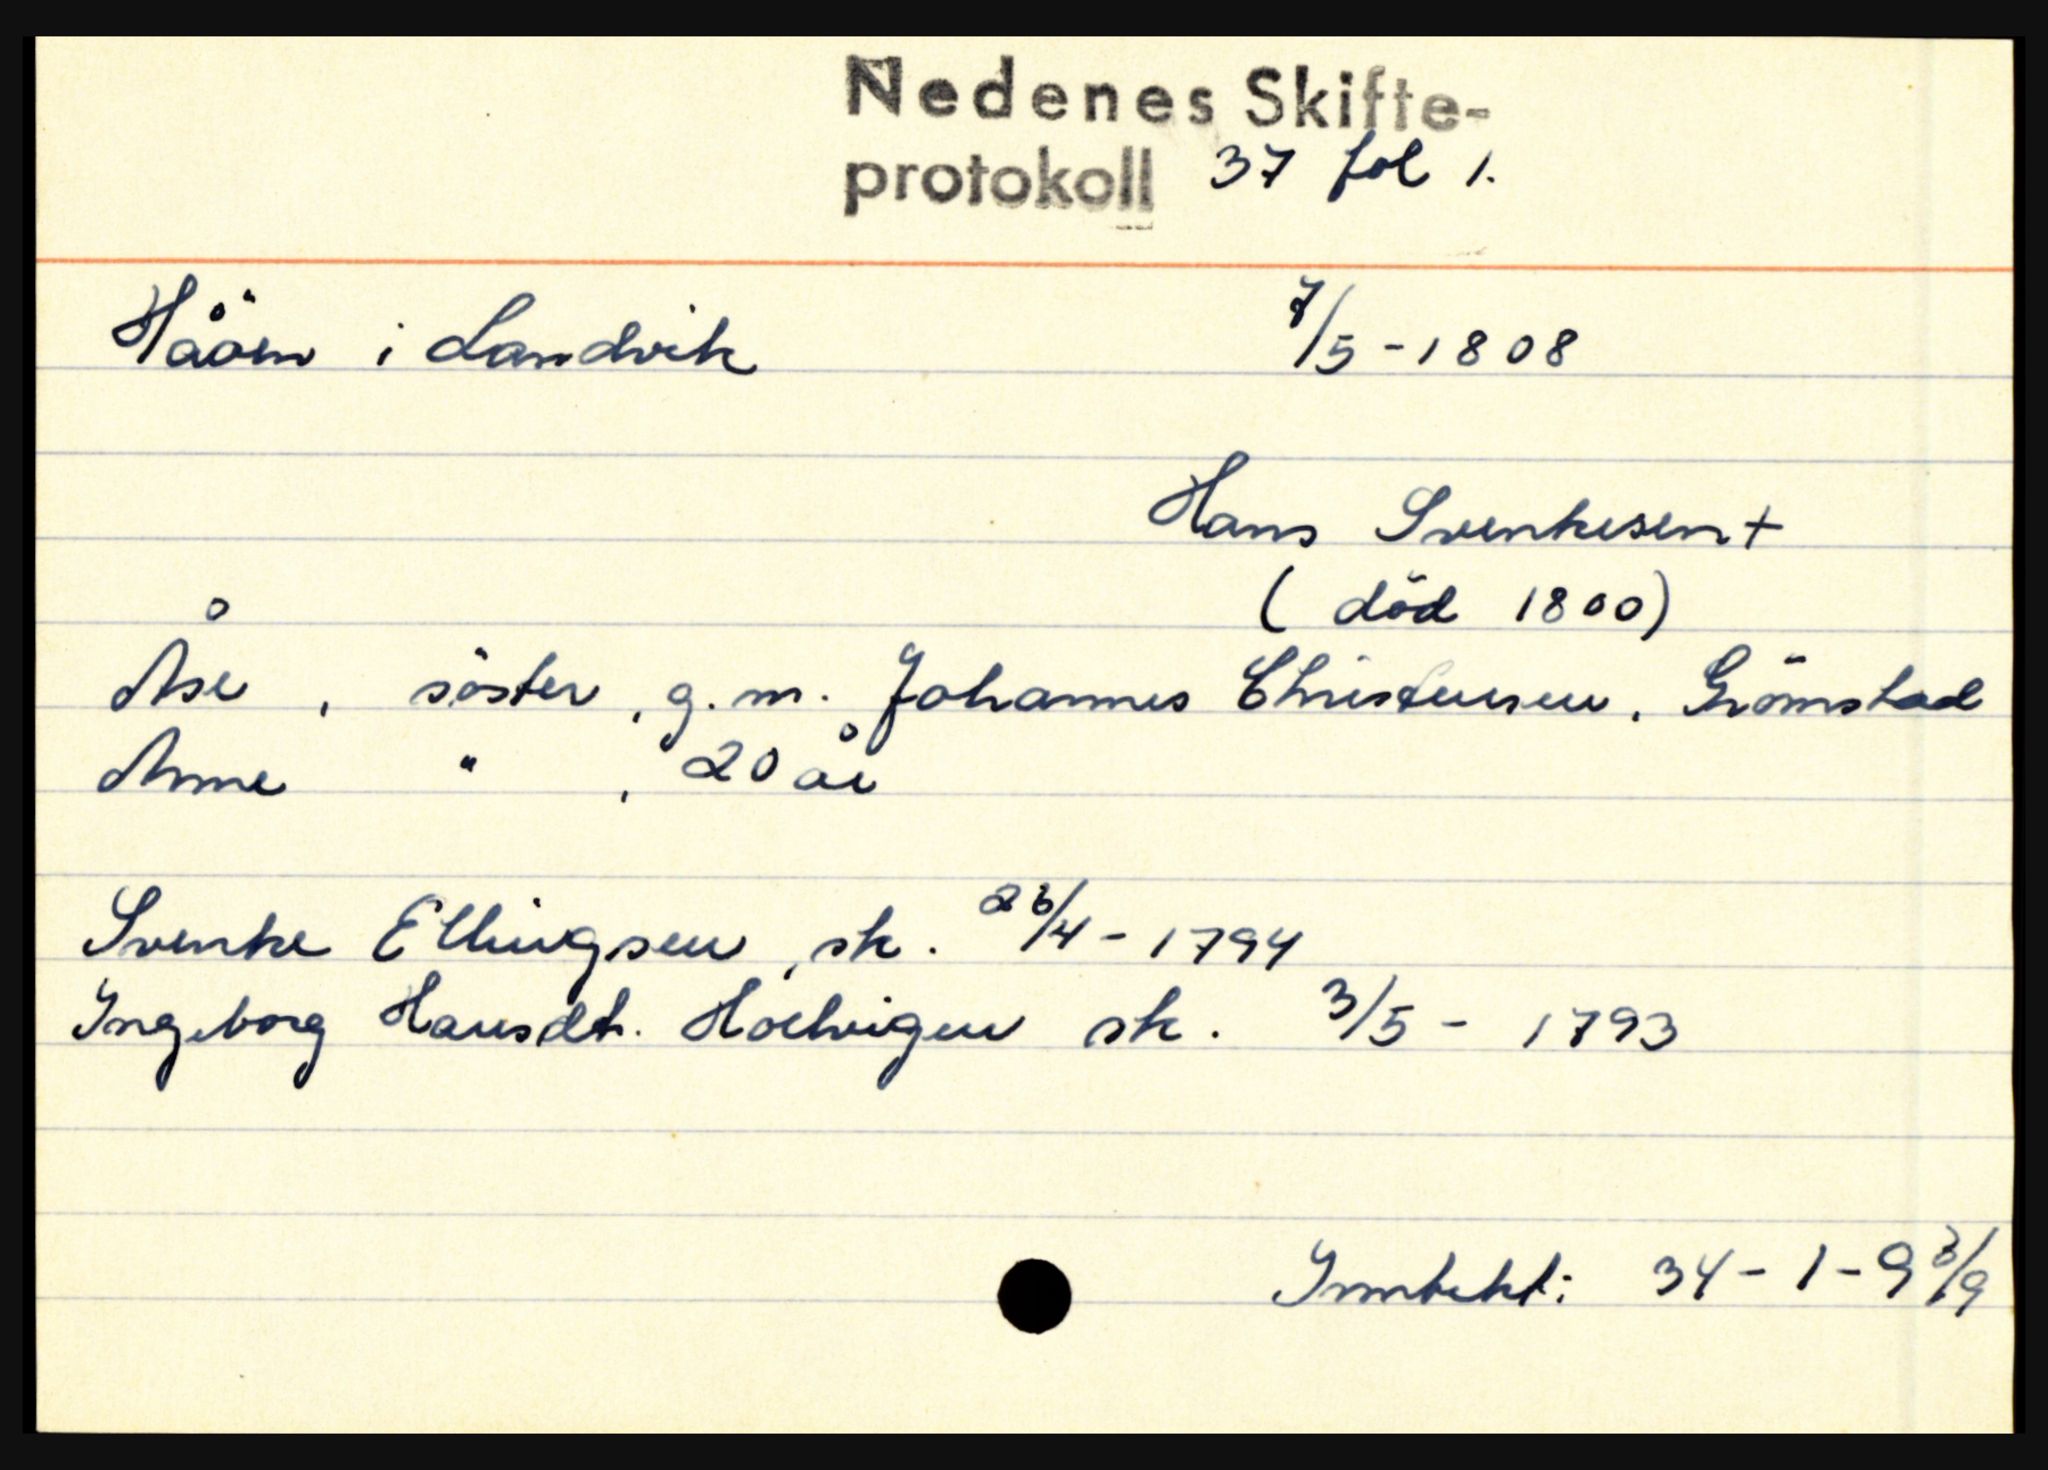 Nedenes Skifte-
protokoll 37 fol 1.
Håöen i Landvik 7/5-1808
Hans Svenkesen +
(död 1800)
Åse, söster, g.m. Johannes Christensen, Grömstad
Anne " , 20 år
Svenke Ellingsen, sk. 26/4-1794
Ingeborg Hansdt. Holvigen sk. 3/5-1793
Inntekt: 34-1-9 3/9